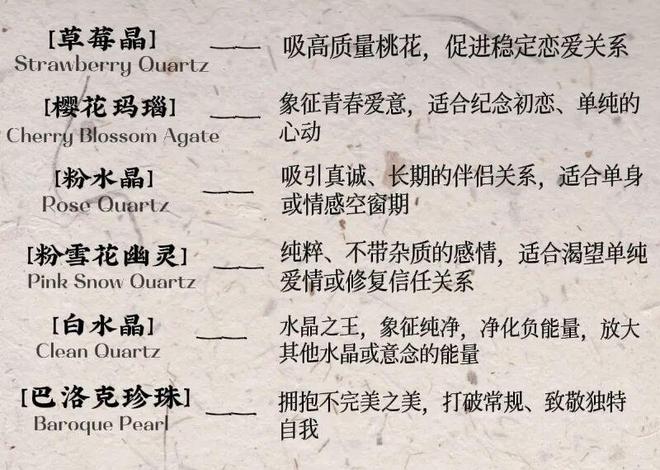 [草莓晶]
Strawberry Quartz
吸高质量桃花，促进稳定恋爱关系
[樱花玛瑙]
Cherry Blossom Agate
象征青春爱意，适合纪念初恋、单纯的
心动
[粉水晶]
Rose Quartz
吸引真诚、长期的伴侣关系，适合单身
或情感空窗期
[粉雪花幽灵]
Pink Snow Quartz
纯粹、不带杂质的感情，适合渴望单纯
爱情或修复信任关系
[白水晶]
Clean Quartz
水晶之王，象征纯净，净化负能量，放大
其他水晶或意念的能量
[巴洛克珍珠]
Baroque Pearl
拥抱不完美之美，打破常规、致敬独特
自我